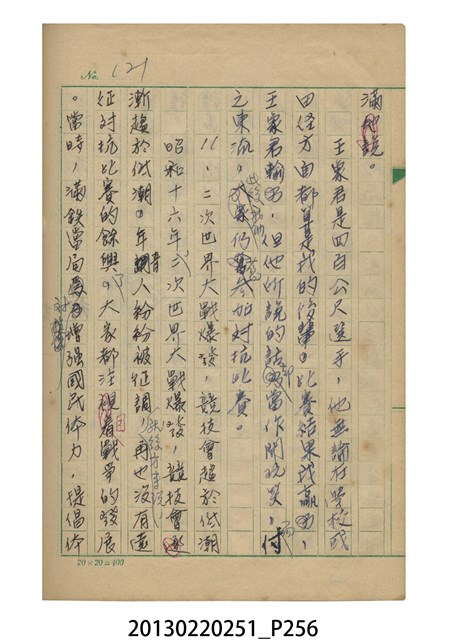 No. 121
滿地說。
王家君是四百公尺選手，他無論在學校或
田径方面都算是我的後輩。比賽结果我贏了，
王家君輸了，但他所說的話却當作開玩笑，付
之東流。我家仍參加对抗比賽。
11、二次世界大戰爆發，競技會趨於低潮
昭和十六年二次世界大戰爆發，競技會逐
漸趨於低潮。年青人紛紛被征調，再也沒有遠
征对抗比賽的餘興了。大家都注目着戰爭的發展
。當時，滿鉄當局為了增强國民体力，提倡体
20×20=400
20130220251_P256